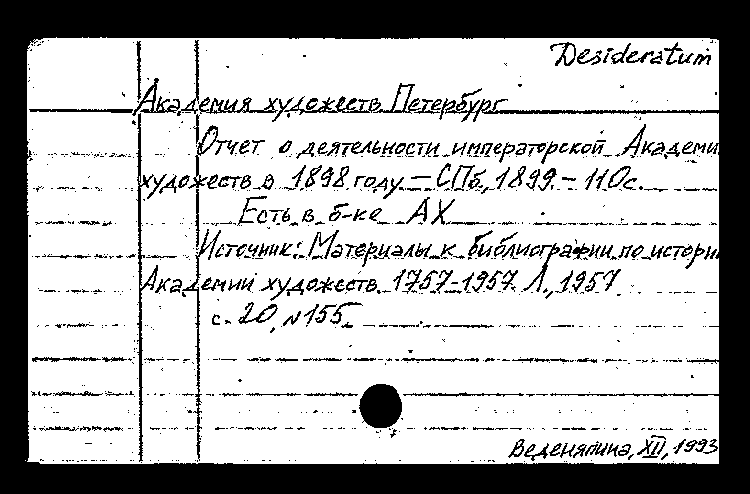 Desideratum
Академия художеств Петербург
Отчет о деятельности императорской Академи
художеств в 1898 году – СПб, 1899. – 110с.
Есть в б-ке АХ
Источник: Материалы к библиографии по истори
Академии художеств 1757-1957. Л., 1957
с. 20, №155.
Веденяпина, XII, 1993